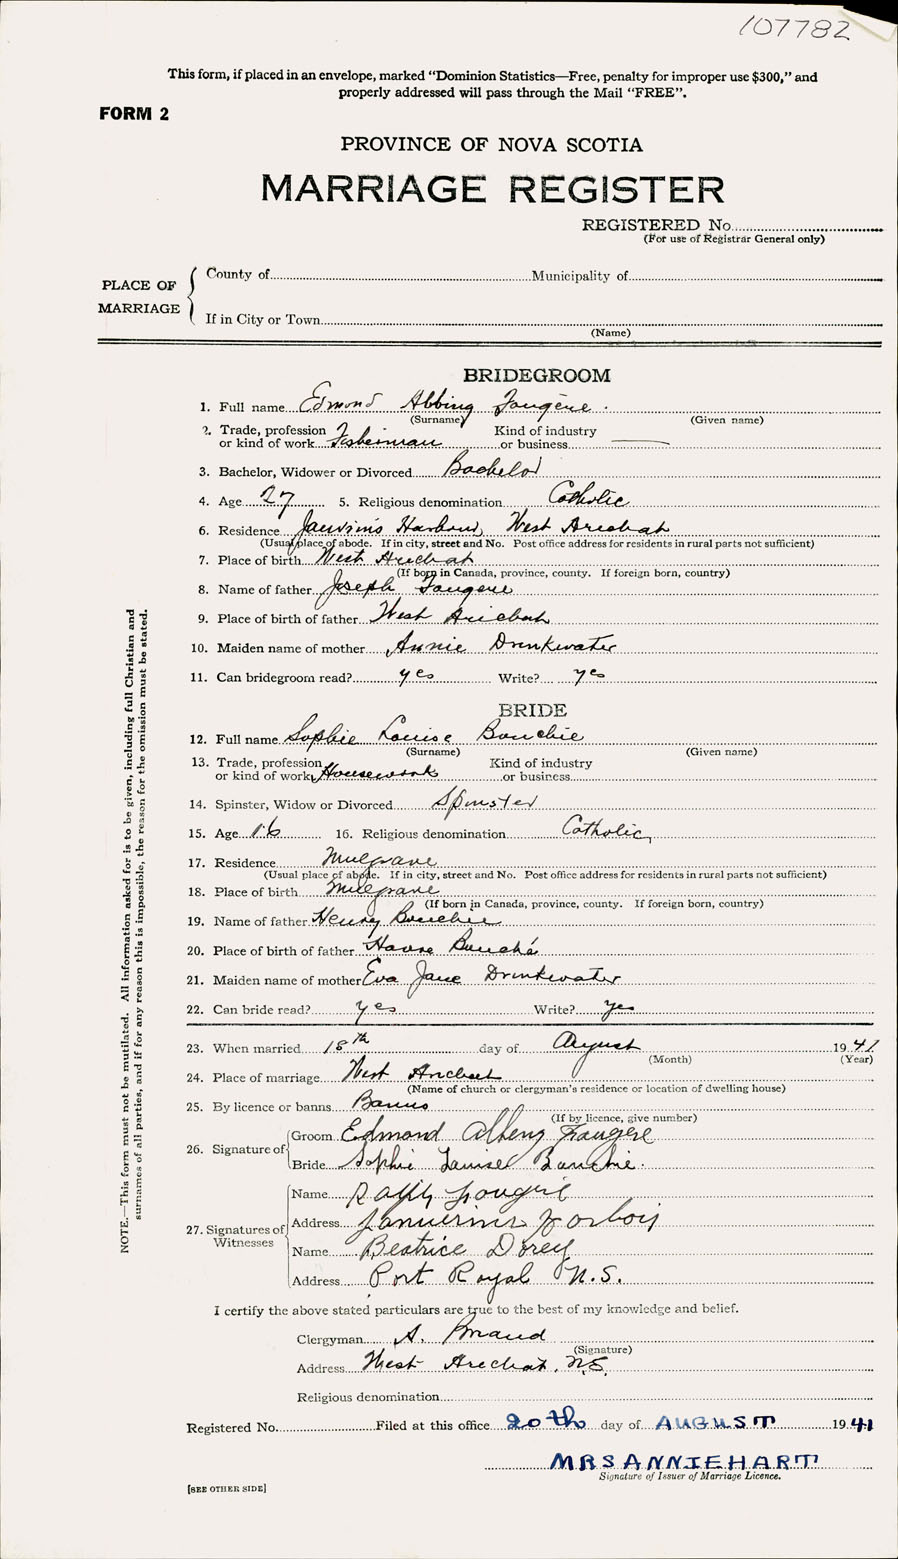 107782
This form, if placed in an envelope, marked "Dominion Statistics—Free, penalty for improper use $300," and
properly addressed will pass through the Mail "FREE".
FORM 2
PROVINCE OF NOVA SCOTIA
MARRIAGE REGISTER
REGISTERED No.
(For use of Registrar General only)
PLACE OF MARRIAGE
County of Municipality of
If in City or Town
(Name)
BRIDEGROOM
1. Full name Edmond Abbing Fougère.
(Surname) (Given name)
2. Trade, profession or kind of work Fisherman Kind of industry or business
3. Bachelor, Widower or Divorced Bachelor
4. Age 27 5. Religious denomination Catholic
6. Residence Harbour, West Arichat
(Usual place of abode. If in city, street and No. Post office address for residents in rural parts not sufficient)
7. Place of birth West Arichat
(If born in Canada, province, county. If foreign born, country)
8. Name of father Joseph Fougere
9. Place of birth of father West Arichat
10. Maiden name of mother Annie Drinkwater
11. Can bridegroom read? yes Write? yes
BRIDE
12. Full name Sophie Louise Bouchie
(Surname) (Given name)
13. Trade, profession or kind of work Housework Kind of industry or business
14. Spinster, Widow or Divorced Spinster
15. Age 16 16. Religious denomination Catholic,
17. Residence Mulgrave
(Usual place of abode. If in city, street and No. Post office address for residents in rural parts not sufficient)
18. Place of birth Mulgrave
(If born in Canada, province, county. If foreign born, country)
19. Name of father Henry Bouchie
20. Place of birth of father Havre Bouché
21. Maiden name of mother Eva Jane Drinkwater
22. Can bride read? yes Write? yes
23. When married 18th day of August 1941
(Month) (Year)
24. Place of marriage West Arichat
(Name of church or clergyman's residence or location of dwelling house)
25. By licence or banns Banns
(If by licence, give number)
26. Signature of
Groom Edmond Albeny Fougere
Bride Sophie Louise Bouchie.
27. Signatures of Witnesses
Name Ralph Fougere
Address
Name Beatrice Dorey
Address Port Royal N.S.
I certify the above stated particulars are true to the best of my knowledge and belief.
Clergyman A. Briand
(Signature)
Address West Arichat, N.S.
Religious denomination
Registered No. Filed at this office 20th day of AUGUST 1941
MRS ANNIE HART
Signature of Issuer of Marriage Licence.
[SEE OTHER SIDE]
NOTE.—This form must not be mutilated. All information asked for is to be given, including full Christian and
surnames of all parties, and if for any reason this is impossible, the reason for the omission must be stated.